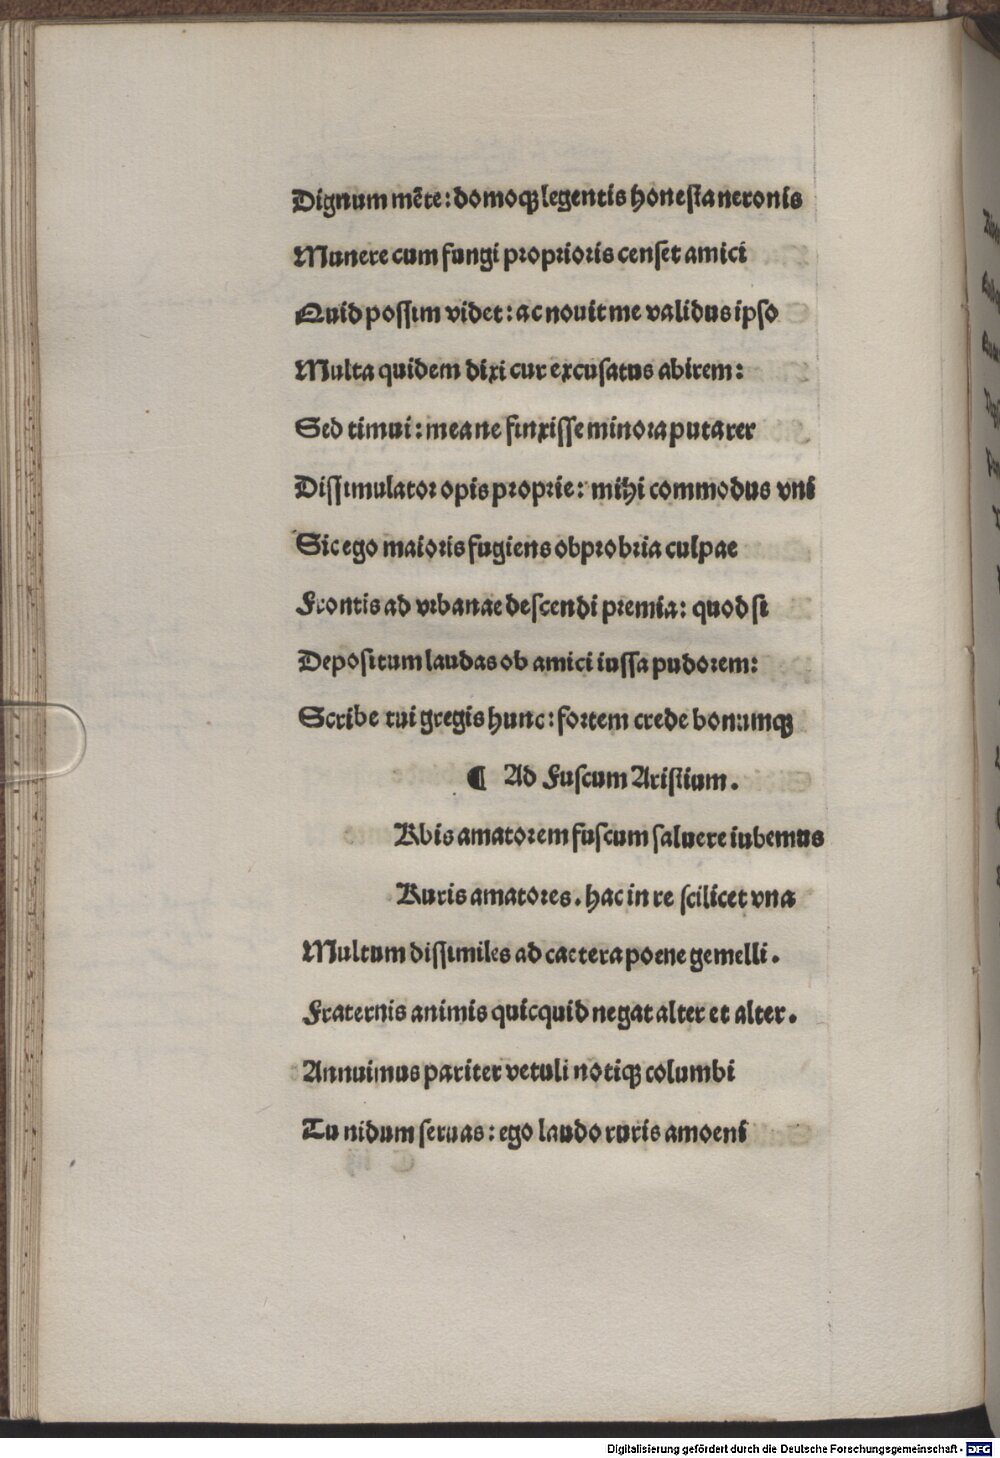 Dignum mẽte: domoqꝫ legentis honesta neronis
Munere cum fungi proprioris censet amici
Quid possim videt: ac nouit me validus ipso
Multa quidem dixi cur excusatus abirem:
Sed timui: mea ne finxisse minora putarer
Dissimulator opis proprie: mihi commodus vni
Sic ego maioris fugiens obprobria culpae
Frontis ad vrbanae descendi premia: quod si
Depositum laudas ob amici iussa pudorem:
Scribe tui gregis hunc: fortem crede bonumqꝫ
¶ Ad Fuscum Aristium.
Rbis amatorem fuscum saluere iubemus
Ruris amatores. hac in re scilicet vna
Multum dissimiles ad caetera poene gemelli.
Fraternis animis quicquid negat alter et alter.
Annuimus pariter vetuli notiqꝫ columbi
Tu nidum seruas: ego laudo ruris amoeni
Digitalisierung gefördert durch die Deutsche Forschungsgemeinschaft - DFG